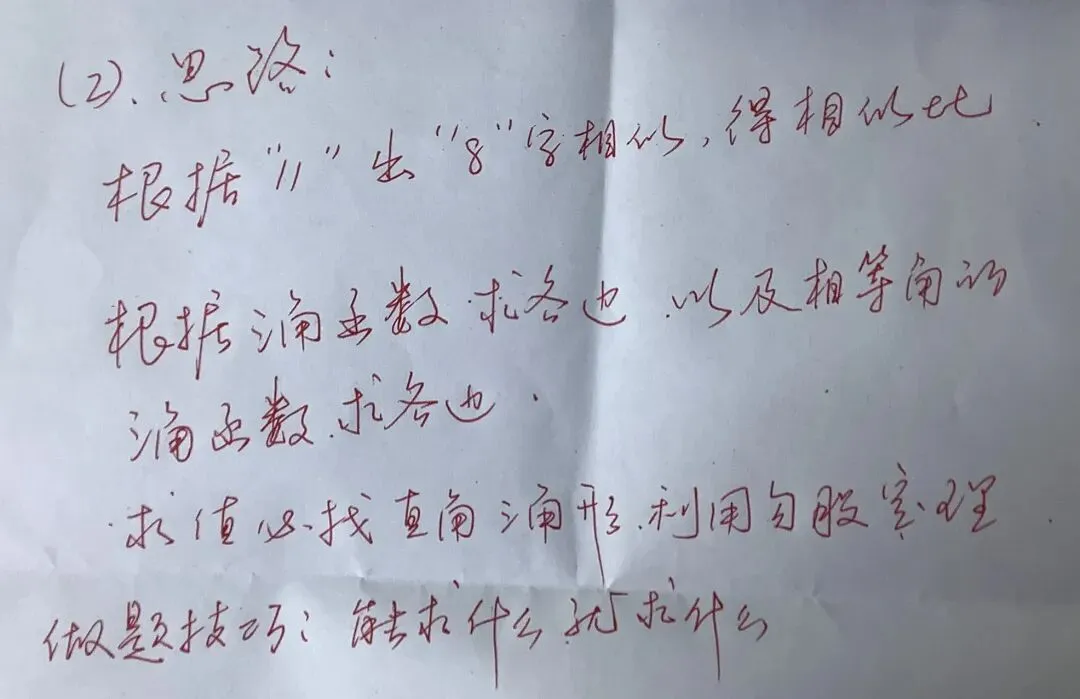 (2). 思路:
根据“//”出“8”字相似,得相似比.
根据三角函数.求各边.以及相等角的
三角函数.求各边.
求值必找直角三角形.利用勾股定理.
做题技巧:能求什么就求什么